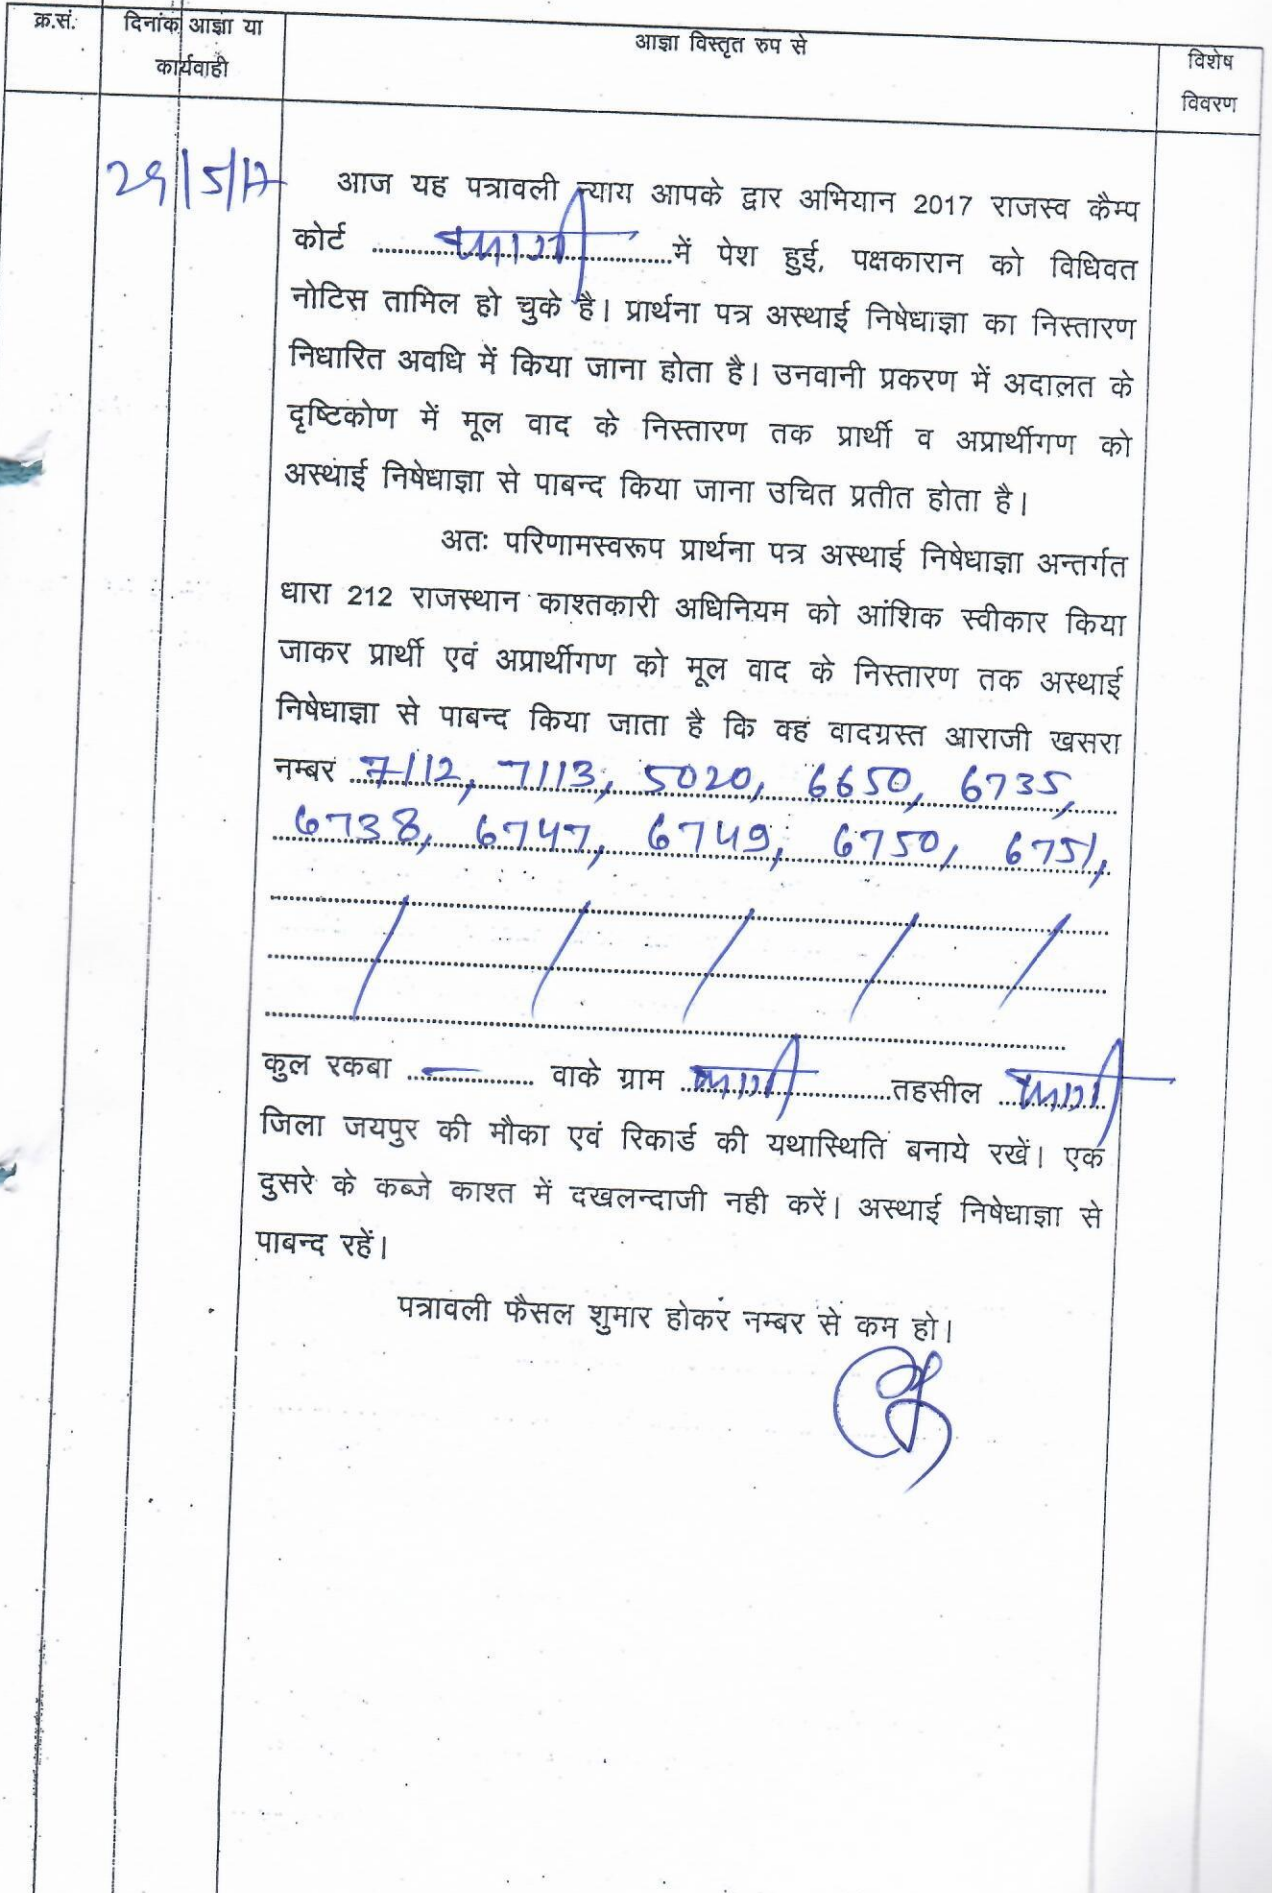 क्र.सं.
दिनांक आज्ञा या
कार्यवाही
आज्ञा विस्तृत रुप से
विशेष
विवरण
29/5/17
आज यह पत्रावली न्याय आपके द्वार अभियान 2017 राजस्व कैम्प
कोर्ट ........................................में पेश हुई, पक्षकारान को विधिवत
नोटिस तामिल हो चुके है। प्रार्थना पत्र अस्थाई निषेधाज्ञा का निस्तारण
निधारित अवधि में किया जाना होता है। उनवानी प्रकरण में अदालत के
दृष्टिकोण में मूल वाद के निस्तारण तक प्रार्थी व अप्रार्थीगण को
अस्थाई निषेधाज्ञा से पाबन्द किया जाना उचित प्रतीत होता है।
अतः परिणामस्वरूप प्रार्थना पत्र अस्थाई निषेधाज्ञा अन्तर्गत
धारा 212 राजस्थान काश्तकारी अधिनियम को आंशिक स्वीकार किया
जाकर प्रार्थी एवं अप्रार्थीगण को मूल वाद के निस्तारण तक अस्थाई
निषेधाज्ञा से पाबन्द किया जाता है कि वह वादग्रस्त आराजी खसरा
नम्बर 7112, 7113, 5020, 6650, 6735,
6738, 6747, 6749, 6750, 6751,
कुल रकबा .................. वाके ग्राम ..............................तहसील ...............
जिला जयपुर की मौका एवं रिकार्ड की यथास्थिति बनाये रखें। एक
दुसरे के कब्जे काश्त में दखलन्दाजी नही करें। अस्थाई निषेधाज्ञा से
पाबन्द रहें।
पत्रावली फैसल शुमार होकर नम्बर से कम हो।